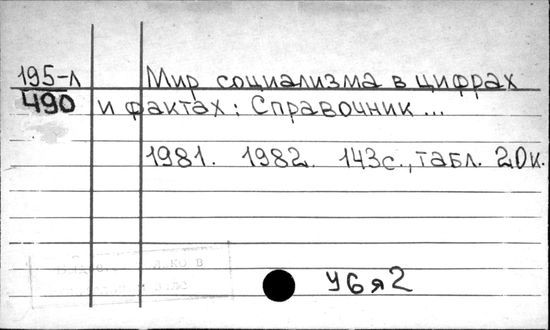 195-л Мир социализма в цифрах
490 и фактах: Справочник...
1981. 1982. 143с., табл. 20к.
У6я2